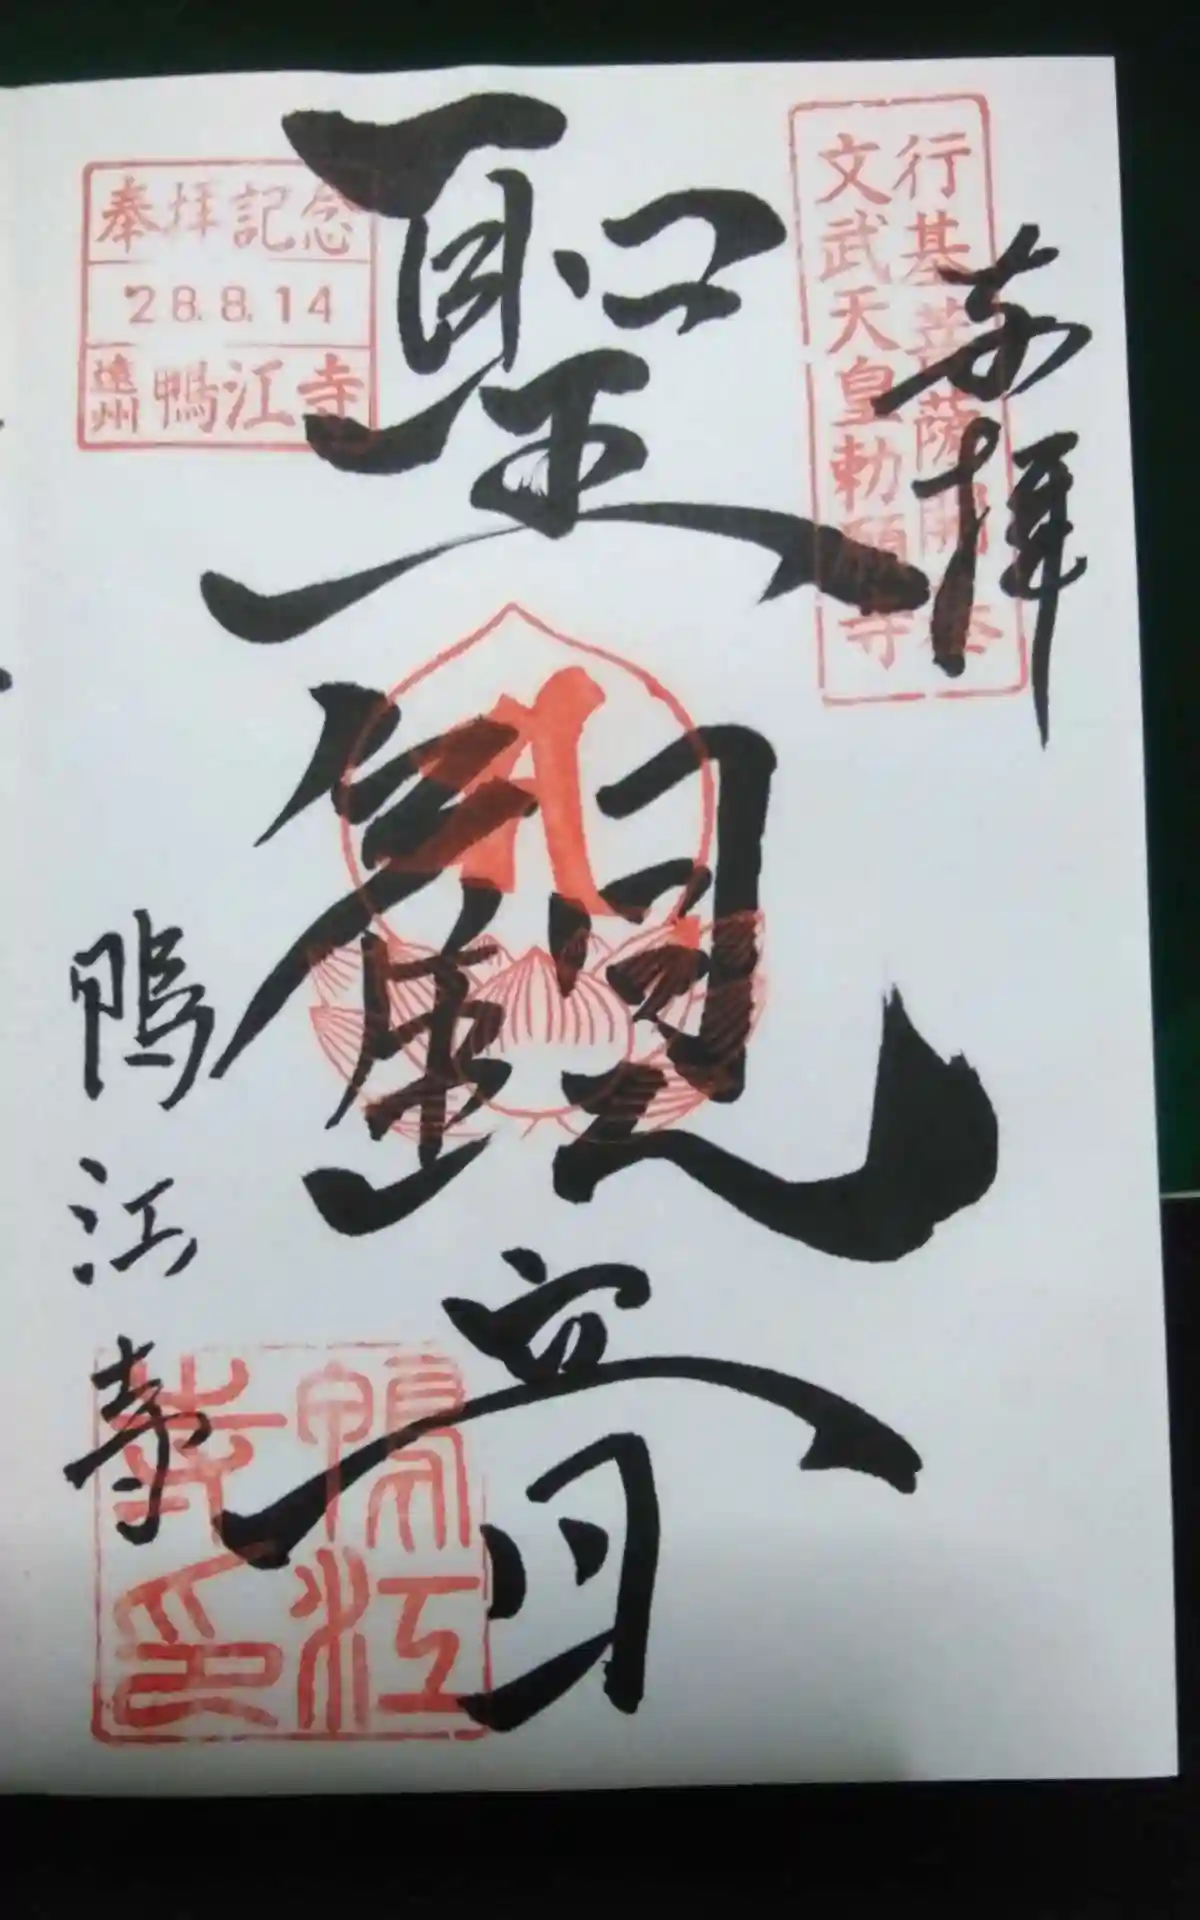 奉拝
行基菩薩開基
文武天皇勅願寺
聖観音
奉拝記念
28.8.14
遠州 鴨江寺
鴨江寺
鴨江
寺印